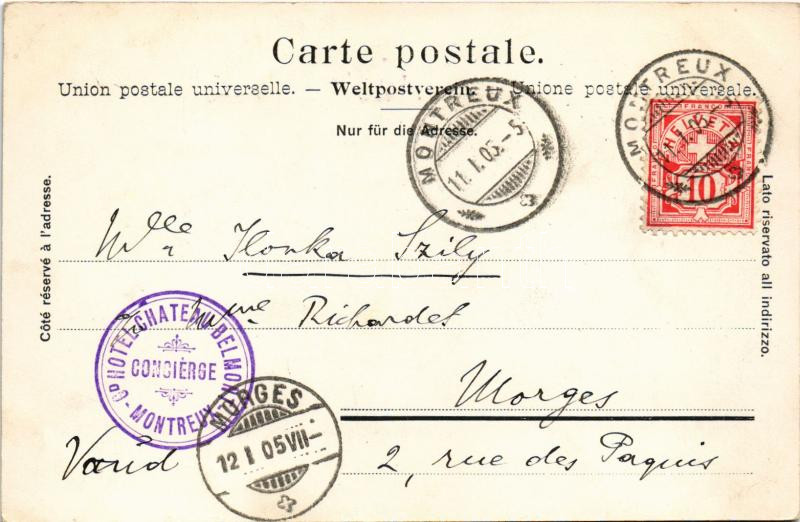 Carte postale.
Union postale universelle. — Weltpostverein. — Unione postale universale.
Nur für die Adresse.
Côté réservé à l'adresse.
Lato riservato all indirizzo.
MONTREUX
11. I. 05. - 5
MONTREUX
FRANCO
HELVETIA
10
Mlle Ilonka Szily
Mme Richardet
Morges
Vaud 2, rue des Paquis
GD HOTEL CHATEAU BELMONT
CONCIÈRGE
- MONTREUX -
MORGES
12 I 05 VII -